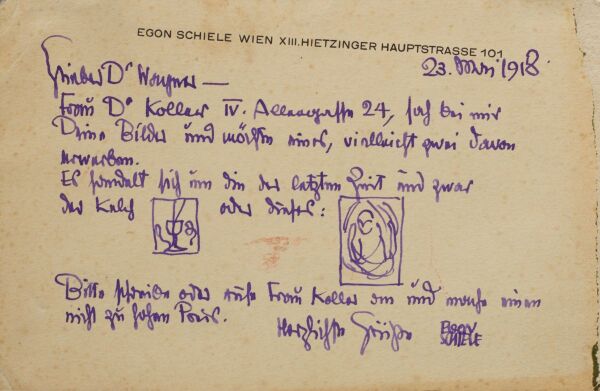 EGON SCHIELE WIEN XIII. HIETZINGER HAUPTSTRASSE 101
23. Mai 1918.
Lieber Dr Wagner —
Frau Dr Koller IV. Alleegasse 24, sah bei mir
Deine Bilder und möchte eines, vielleicht zwei davon
erwerben.
Es handelt sich um die der letzten Zeit und zwar
der Kelch oder dieses:
Bitte schreibe oder rufe Frau Koller an und mache einen
nicht zu hohen Preis.
Herzlichste Grüße
EGON
SCHIELE